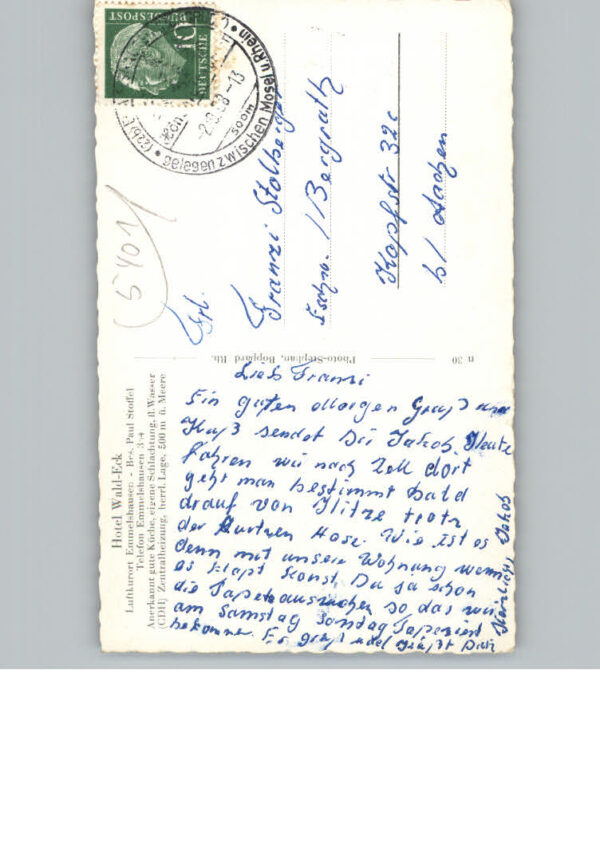 Hotel Wald-Eck
Luftkurort Emmelshausen - Bes. Paul Stoffel
Telefon Emmelshausen 344
Anerkannt gute Küche, eigene Schlachtung, fl. Wasser
(CDH) Zentralheizung, herrl. Lage, 500 m ü. Meere
Lieb Franzi
Ein guten Morgen Gruß und
Kuß sendet Dir Jakob. Heute
fahren wir nach Zell dort
geht man bestimmt bald
drauf von Hitze trotz
der kurtzen Hose. Wie ist es
denn mit unsere Wohnung wenn
es klapt konst Du ja schon
die Tapeten aussuchen so das wir
am Samstag Sontag Tapeziert
bekomme. Es grüßt und küßt Dich
Herzlichst Jakob
Photo-Stephan, Boppard Rh.
n 30
DEUTSCHE
BUNDESPOST
10
gelegen zwischen Mosel u. Rhein
500m
-13
5401
Frl.
Franzi Stolberger
Eschw. / Bergrath
Kopfstr 32c
b/ Aachen